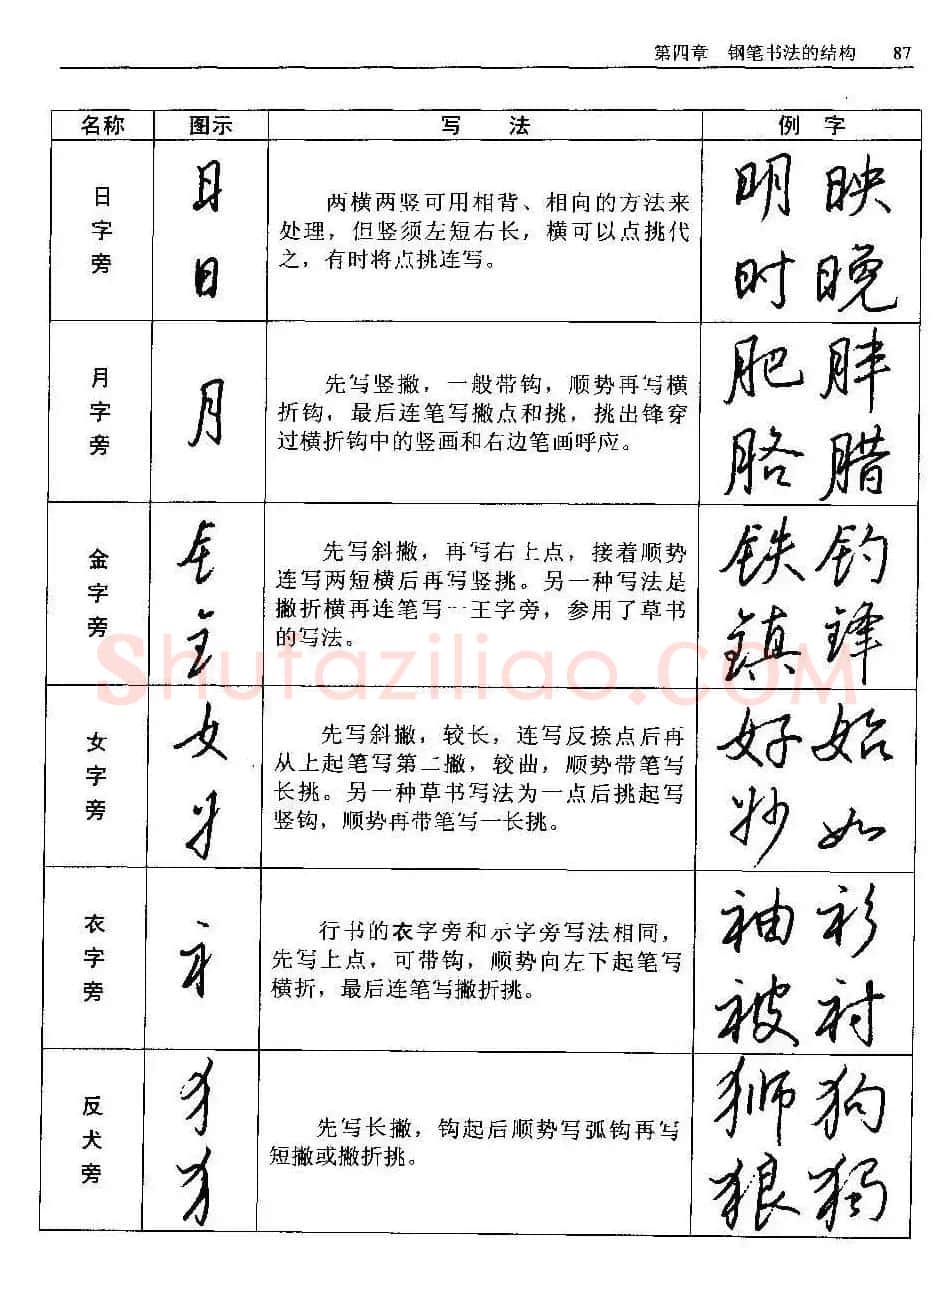 第四章 钢笔书法的结构 87
名称 图示 写 法 例 字
日字旁
日
日
两横两竖可用相背、相向的方法来
处理，但竖须左短右长，横可以点挑代
之，有时将点挑连写。
明 映
时 晚
月字旁
月
先写竖撇，一般带钩，顺势再写横
折钩，最后连笔写撇点和挑，挑出锋穿
过横折钩中的竖画和右边笔画呼应。
肥 胖
胳 腊
金字旁
钅
先写斜撇，再写右上点，接着顺势
连写两短横后再写竖挑。另一种写法是
撇折横再连笔写一王字旁，参用了草书
的写法。
铁 钓
镇 锋
女字旁
女
先写斜撇，较长，连写反捺点后再
从上起笔写第二撇，较曲，顺势带笔写
长挑。另一种草书写法为一点后挑起写
竖钩，顺势再带笔写一长挑。
好 始
妙 如
衣字旁
衤
行书的衣字旁和示字旁写法相同，
先写上点，可带钩，顺势向左下起笔写
横折，最后连笔写撇折挑。
袖 衫
被 衬
反犬旁
犭
犭
先写长撇，钩起后顺势写弧钩再写
短撇或撇折挑。
狮 狗
狼 独
Shufaziliao.COM